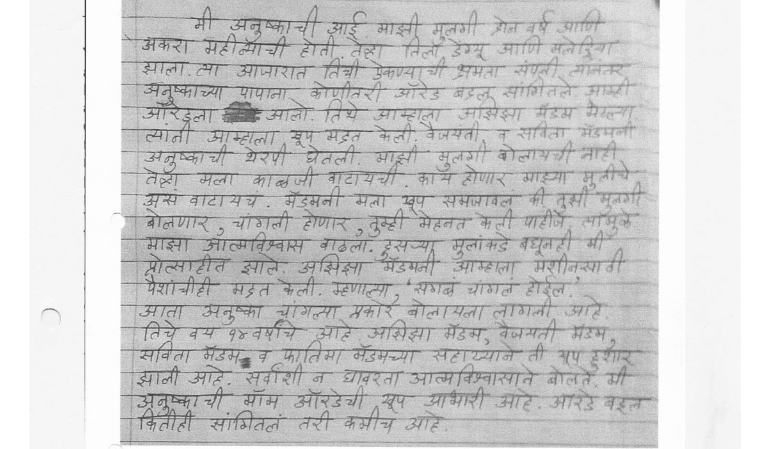 मी अनुष्काची आई. माझी मुलगी दोन वर्ष आणि
अकरा महीन्याची होती तेव्हा तिला डेंग्यू आणि मलेरिया
झाला. त्या आजारात तिची ऐकण्याची क्षमता संपली. त्यानंतर
अनुष्काच्या पापाना कोणीतरी ऑरेड बद्दल सांगितले आम्ही
ऑरेडला आलो. तिथे आम्हाला अझिझा मॅडम भेटल्या
त्यानी आम्हाला खूप मदत केली. वैजयती व सविता मॅडमनी
अनुष्काची थेरपी घेतली. माझी मुलगी बोलायची नाही
तेव्हा मला काळजी वाटायची. काय होणार माझ्या मुलीचे
असं वाटायचं. मॅडमनी मला खूप समजावलं की तुझी मुलगी
बोलणार, चांगली होणार, तुम्ही मेहनत केली पाहीजे त्यामुळे
माझा आत्मविश्वास वाढला. दुसऱ्या मुलांकडे बघूनही मी
प्रोत्साहीत झाले. अझिझा मॅडमनी आम्हाला मशीनसाठी
पैशाचीही मदत केली. म्हणाल्या, 'सगळं चांगलं होईल.'
आता अनुष्का चांगल्या प्रकारे बोलायला लागली आहे
तिचे वय १४ वर्षाचे आहे अझिझा मॅडम, वैजयती मॅडम,
सविता मॅडम व फातिमा मॅडमच्या सहाय्याने ती खूप हुशार
झाली आहे. सर्वांशी न घाबरता आत्मविश्वासाने बोलते. मी
अनुष्काची मॉम ऑरेडची खूप आभारी आहे. ऑरेड बद्दल
कितीही सांगितलं तरी कमीच आहे.